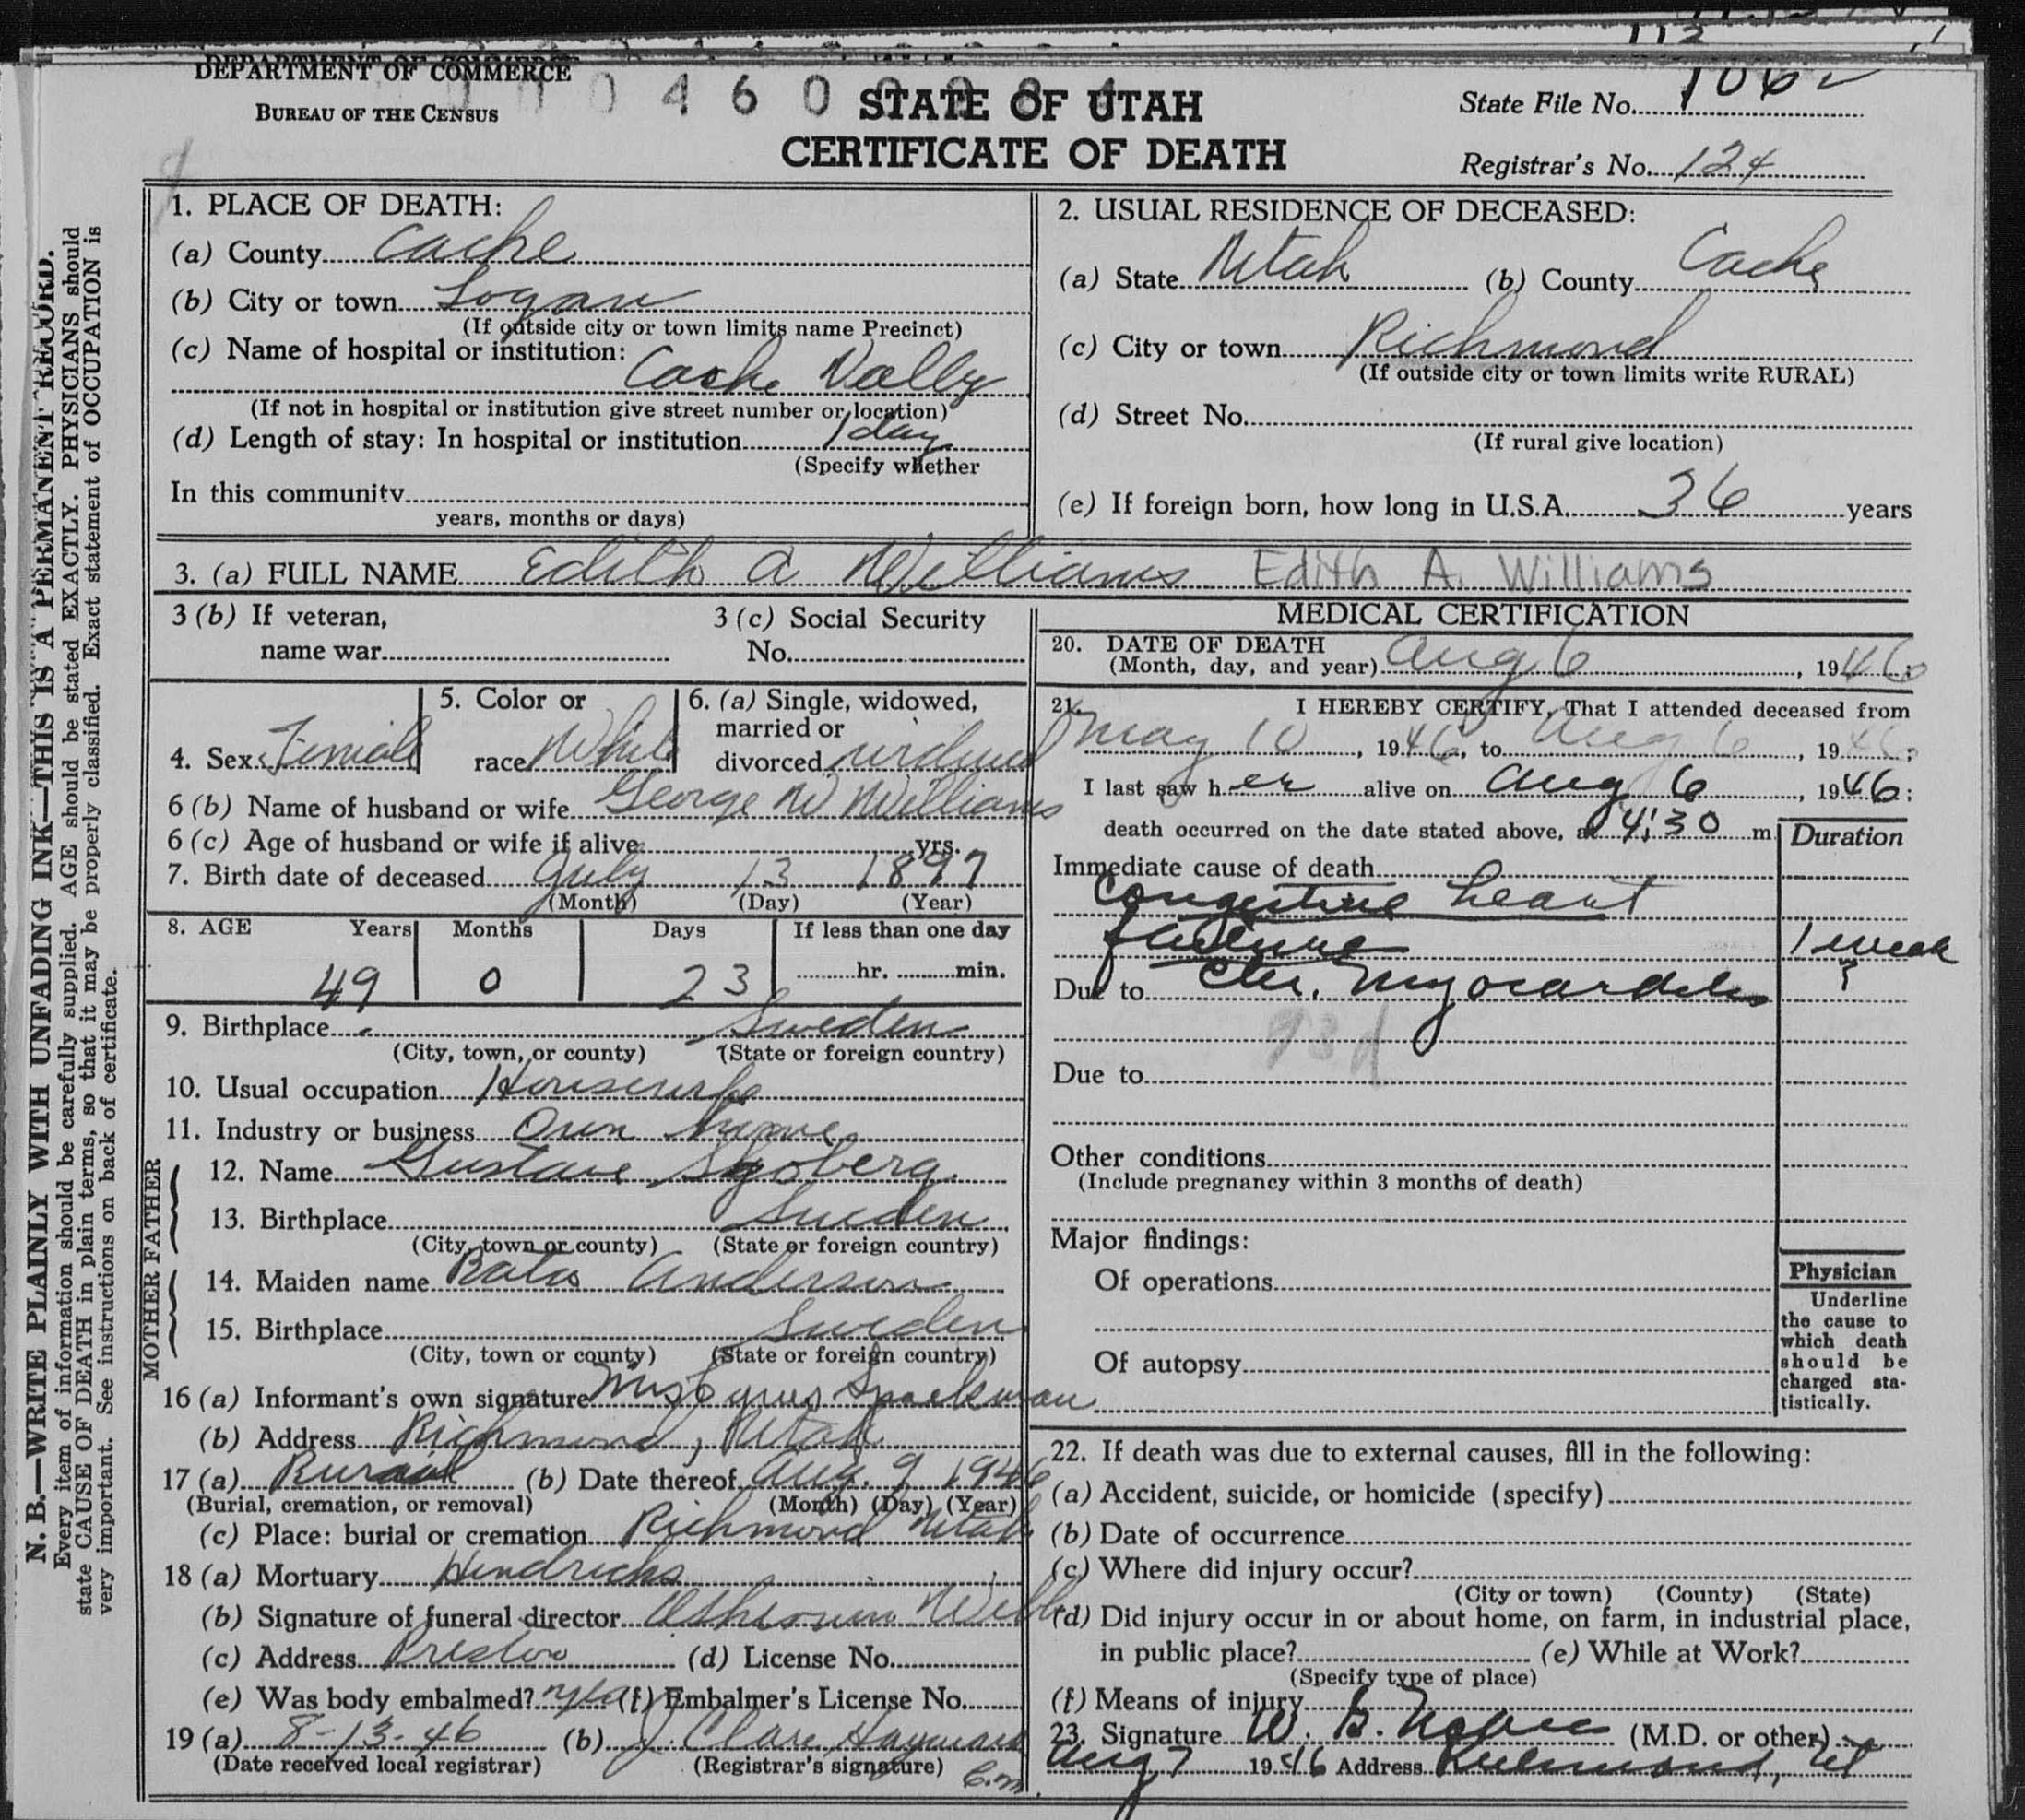 DEPARTMENT OF COMMERCE
BUREAU OF THE CENSUS
STATE OF UTAH
CERTIFICATE OF DEATH
State File No.
Registrar's No. 124
N. B.—WRITE PLAINLY WITH UNFADING INK—THIS IS A PERMANENT RECORD.
Every item of information should be carefully supplied. AGE should be stated EXACTLY. PHYSICIANS should
state CAUSE OF DEATH in plain terms, so that it may be properly classified. Exact statement of OCCUPATION is
very important. See instructions on back of certificate.
1. PLACE OF DEATH:
(a) County Cache
(b) City or town Logan
(If outside city or town limits name Precinct)
(c) Name of hospital or institution:
Cache Valley
(If not in hospital or institution give street number or location)
(d) Length of stay: In hospital or institution 1 day
(Specify whether
In this community
years, months or days)
2. USUAL RESIDENCE OF DECEASED:
(a) State Utah (b) County Cache
(c) City or town Richmond
(If outside city or town limits write RURAL)
(d) Street No.
(If rural give location)
(e) If foreign born, how long in U.S.A. 36 years
3. (a) FULL NAME Edith A Williams Edith A. Williams
3 (b) If veteran,
name war
3 (c) Social Security
No.
4. Sex Female
5. Color or
race White
6. (a) Single, widowed,
married or
divorced widowed
6 (b) Name of husband or wife George W Williams
6 (c) Age of husband or wife if alive yrs.
7. Birth date of deceased July 13 1897
(Month) (Day) (Year)
8. AGE Years Months Days If less than one day
49 0 23 hr. min.
9. Birthplace Sweden
(City, town, or county) (State or foreign country)
10. Usual occupation Housewife
11. Industry or business Own home
FATHER
12. Name Gustave Sjoberg
13. Birthplace Sweden
(City, town or county) (State or foreign country)
MOTHER
14. Maiden name Anderson
15. Birthplace Sweden
(City, town or county) (State or foreign country)
16 (a) Informant's own signature Mrs Cyrus Spackman
(b) Address Richmond, Utah
17 (a) Burial (b) Date thereof Aug. 9 1946
(Burial, cremation, or removal) (Month) (Day) (Year)
(c) Place: burial or cremation Richmond Utah
18 (a) Mortuary Hendricks
(b) Signature of funeral director Webb
(c) Address Preston (d) License No.
(e) Was body embalmed? yes (f) Embalmer's License No.
19 (a) 8-13-46 (b) J. Clare Hayward
(Date received local registrar) (Registrar's signature)
MEDICAL CERTIFICATION
20. DATE OF DEATH
(Month, day, and year) Aug 6, 1946
21. I HEREBY CERTIFY, That I attended deceased from
May 10, 1946, to Aug 6, 1946;
I last saw her alive on Aug 6, 1946;
death occurred on the date stated above, at 4:30 m
Duration
Immediate cause of death
Congestive heart
failure 1 week
Due to Chr. Myocarditis ?
93d
Due to
Other conditions
(Include pregnancy within 3 months of death)
Major findings:
Of operations
Of autopsy
Physician
Underline
the cause to
which death
should be
charged sta-
tistically.
22. If death was due to external causes, fill in the following:
(a) Accident, suicide, or homicide (specify)
(b) Date of occurrence
(c) Where did injury occur?
(City or town) (County) (State)
(d) Did injury occur in or about home, on farm, in industrial place,
in public place? (e) While at Work?
(Specify type of place)
(f) Means of injury
23. Signature W. B. (M.D. or other)
Aug 7 1946 Address Richmond, Ut